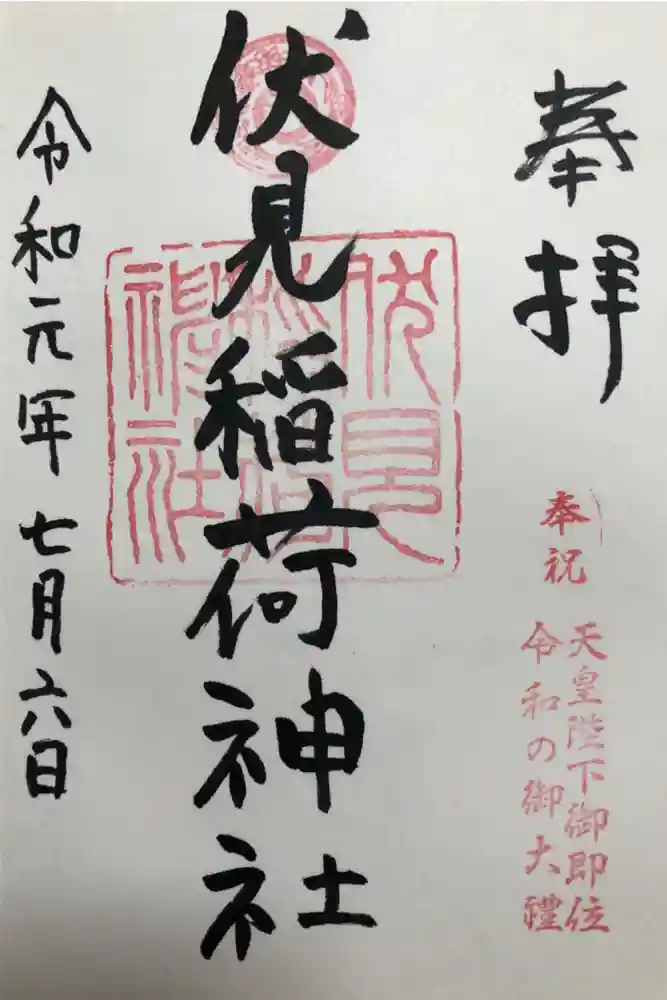 奉拝
奉祝
天皇陛下御即位
令和の御大禮
伏見稲荷神社
伏見
稲荷
神社
令和元年七月六日